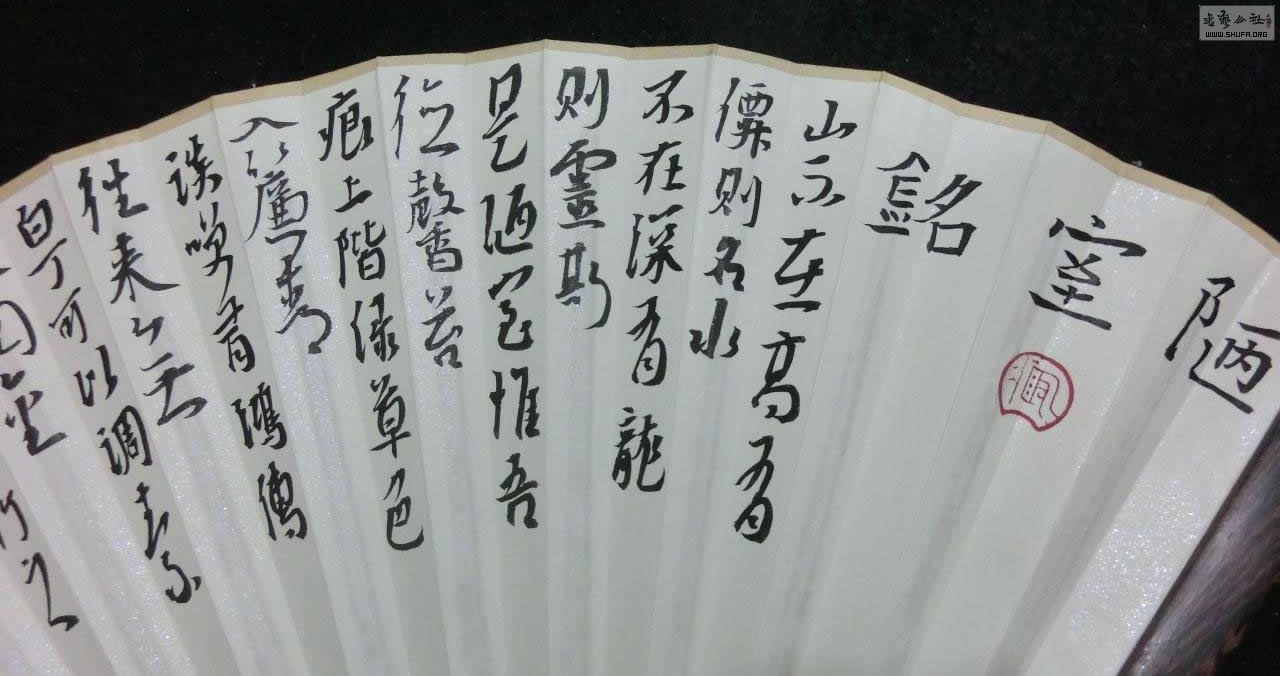 陋
室
銘
山不在高有
僊則名水
不在深有龍
則靈斯
是陋室惟吾
德馨苔
痕上階綠草色
入簾青
談笑有鴻儒
往來無
白丁可以調素
金
書藝公社
WWW.SHUFA.ORG